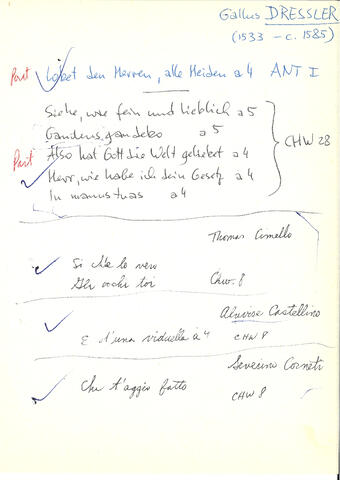 Gallus DRESSLER
(1533 - c. 1585)
Part Lobet den Herren, alle Heiden a 4 ANT I
Siehe, wie fein und lieblich a 5
Gaudens gaudebo a 5
CHW 28
Part Also hat Gott die Welt geliebet a 4
Herr, wie habe ich dein Gesetz a 4
In manus tuas a 4
Thomas Cimello
Si ch'e lo vero
Gli occhi toi Chw. 8
Alvise Castellino
E d'una viduella à 4 CHW 8
Severino Corneti
Che t'aggio fatto CHW 8